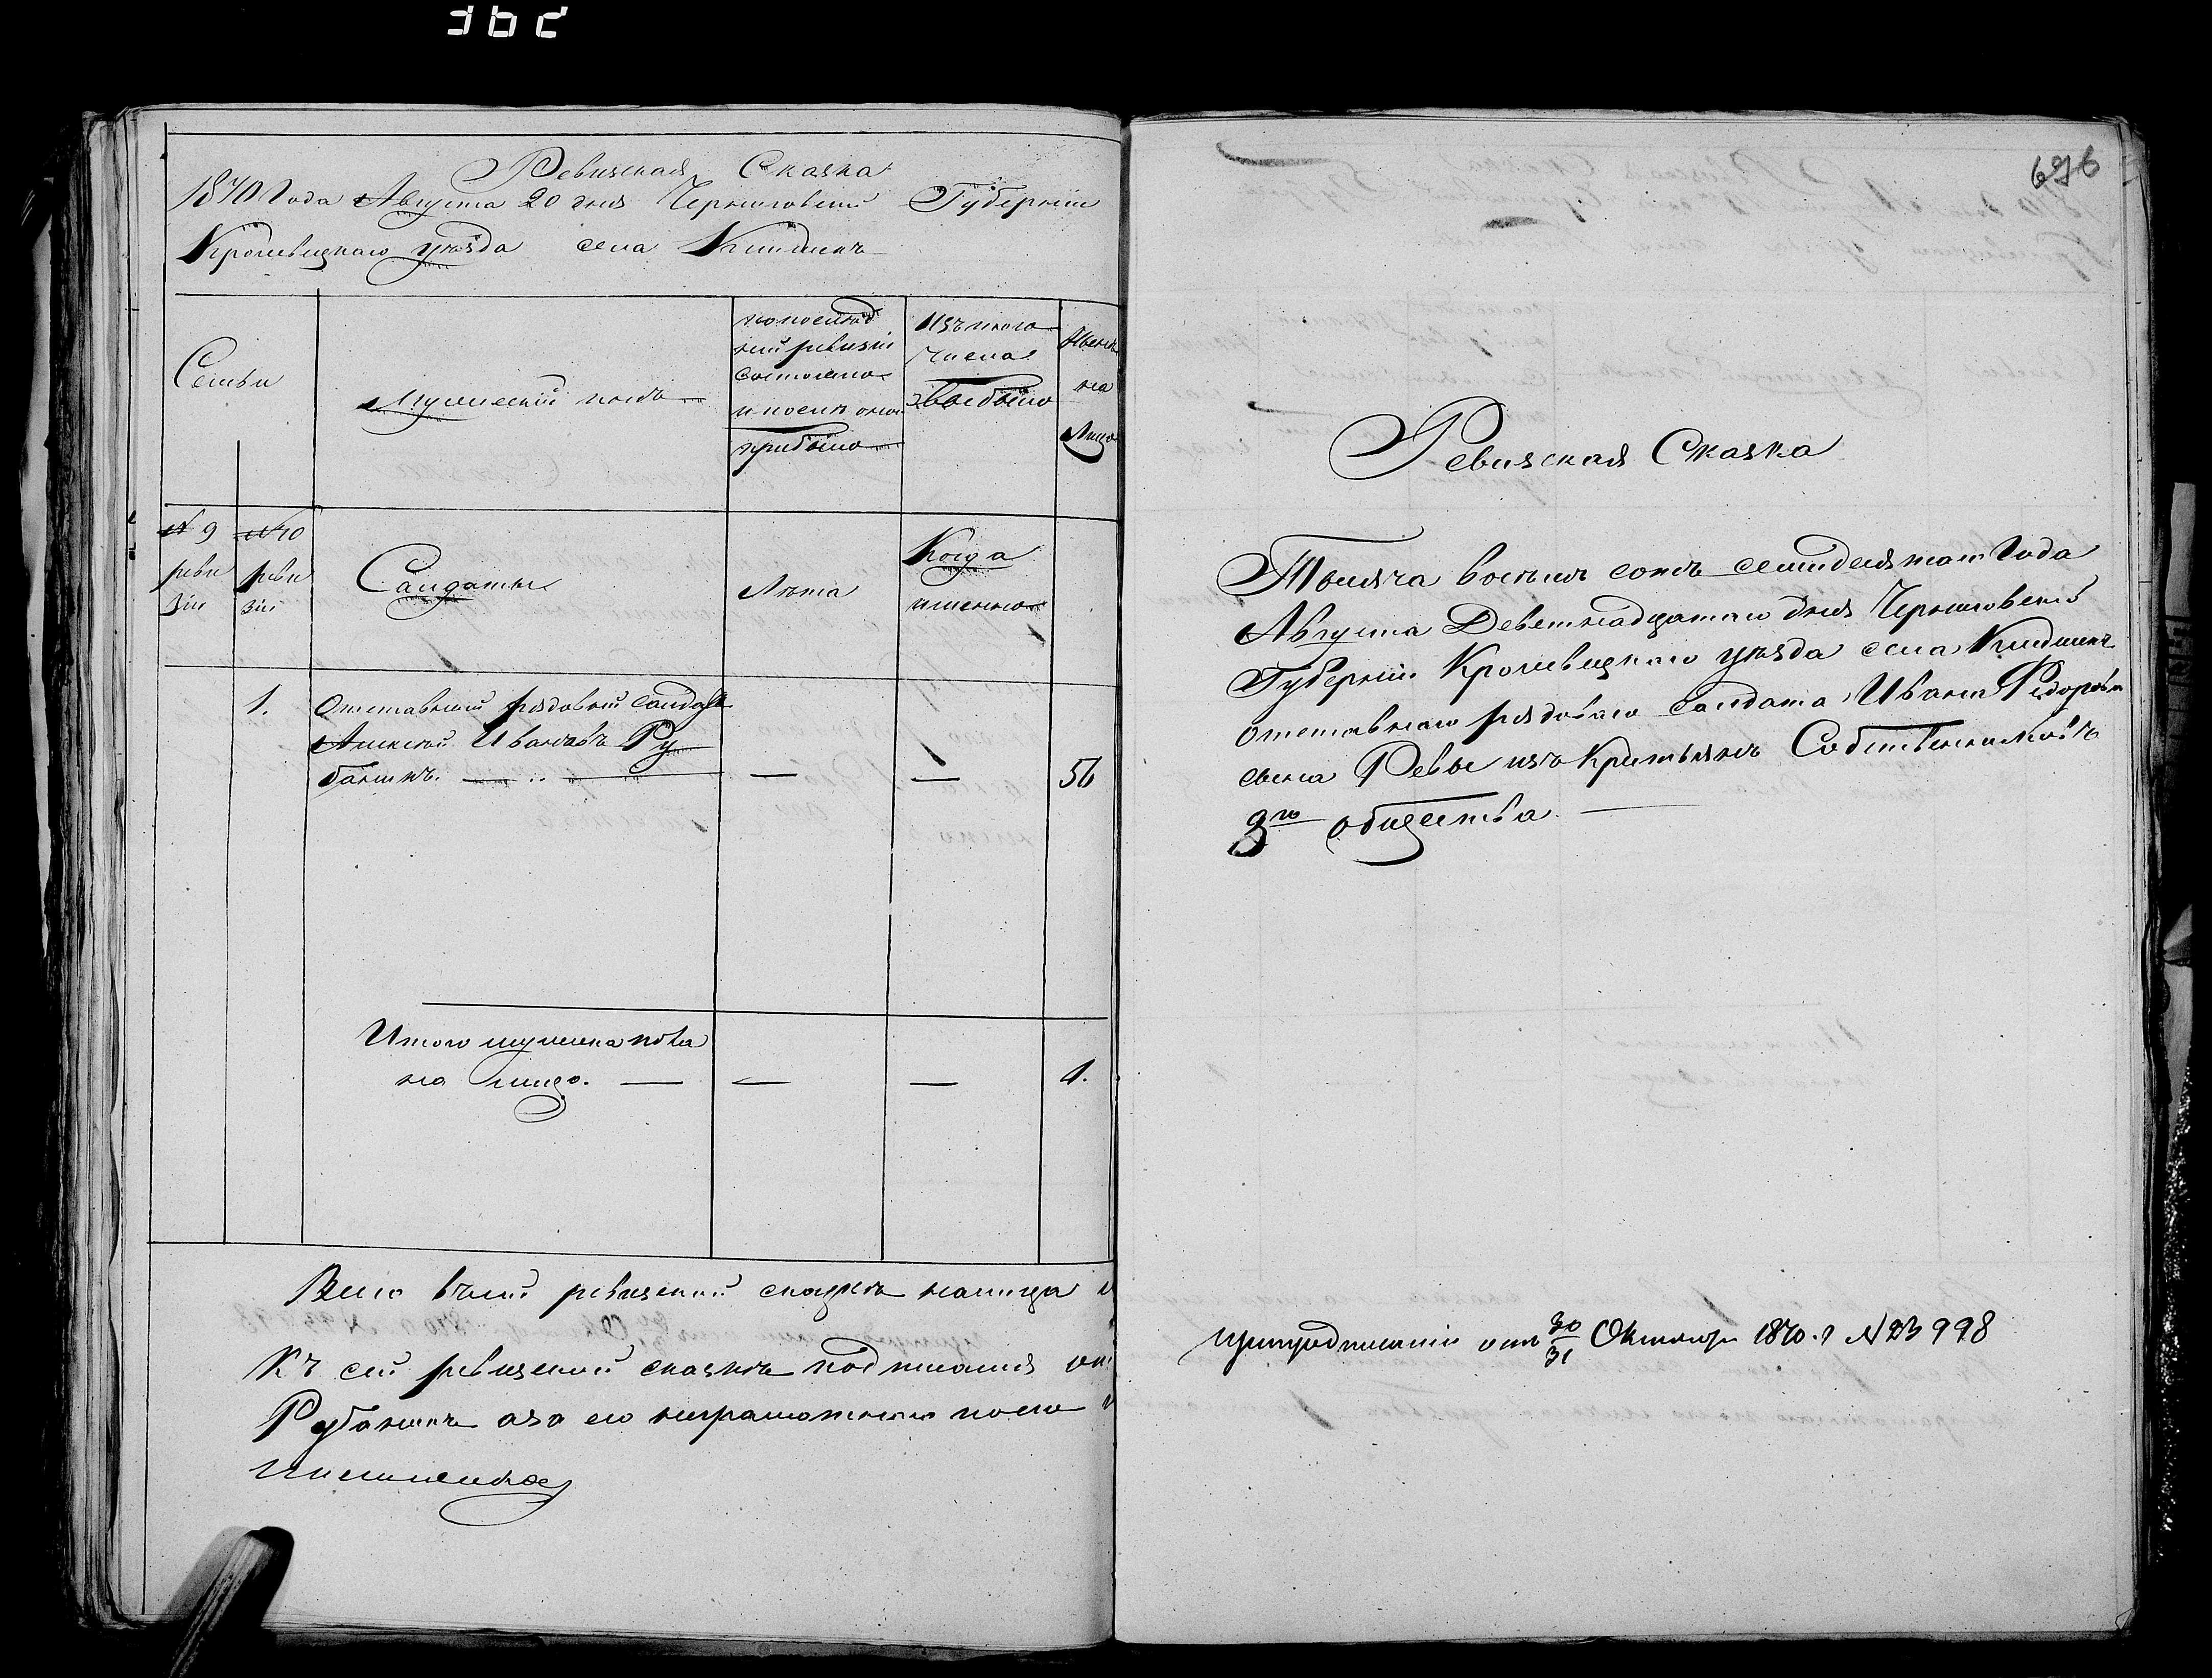 Ревизская Сказка
1870 Года Августа 20 дня Черниговской Губерніи
Кролевецкаго уѣзда села
Семьи
Мужескій полъ
по послѣд
ней ревизіи
состояло
и послѣ оной
прибыло
Изъ того
числа
выбыло
Нынѣ
на
Лицо
№ 9
реви
зіи
№ 10
реви
зіи
Солдаты
Лѣта
Когда
именно
1.
Отставный рядовый солдатъ
Алексѣй Ивановъ Ру
банъ
56
Итого мужеска пола
на лицо.
1.
Всего въ сей ревизской сказкѣ на лицо
Къ сей ревизской сказкѣ подписался
а за его неграмотнаго
696
Ревизская Сказка
Тысяча восемь сотъ семидесятаго Года
Августа Деветнадцатаго дня Черниговской
Губерніи Кролевецкаго уѣзда села
отставнаго рядоваго солдата Ивана Федорова
сына Ревы изъ Крестьянъ Собственниковъ
3го общества
При предписаніи отъ 30/31 Октября 1870 г № 23998